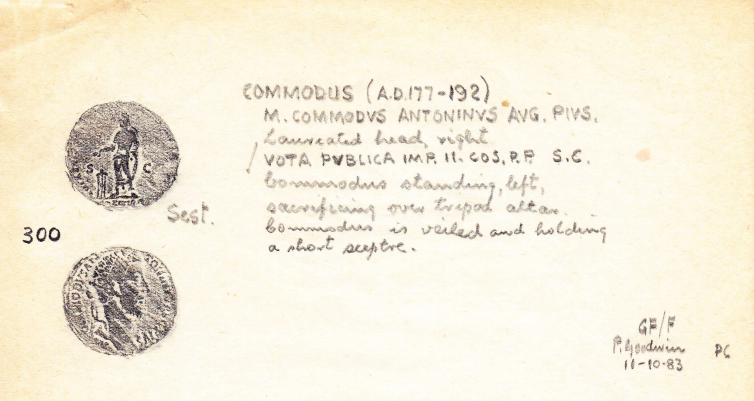 COMMODUS (A.D.177-192)
M. COMMODVS ANTONINVS AVG. PIVS.
Laureated head, right
VOTA PVBLICA IMP. II. COS. P.P S.C.
Commodus standing, left,
sacrificing over tripod altar.
Commodus is veiled and holding
a short sceptre.
S C
Sest.
300
GF/F
P. Goodwin
11-10-83
PC